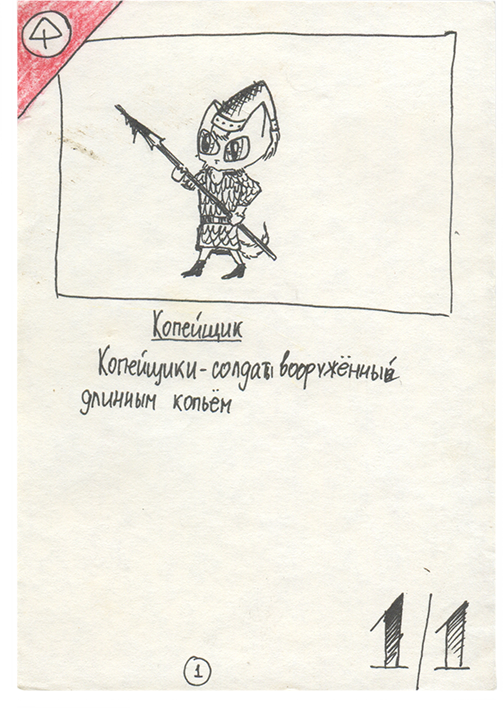 Копейщик
Копейщики - солдаты вооружённые
длинным копьём
1/1
1